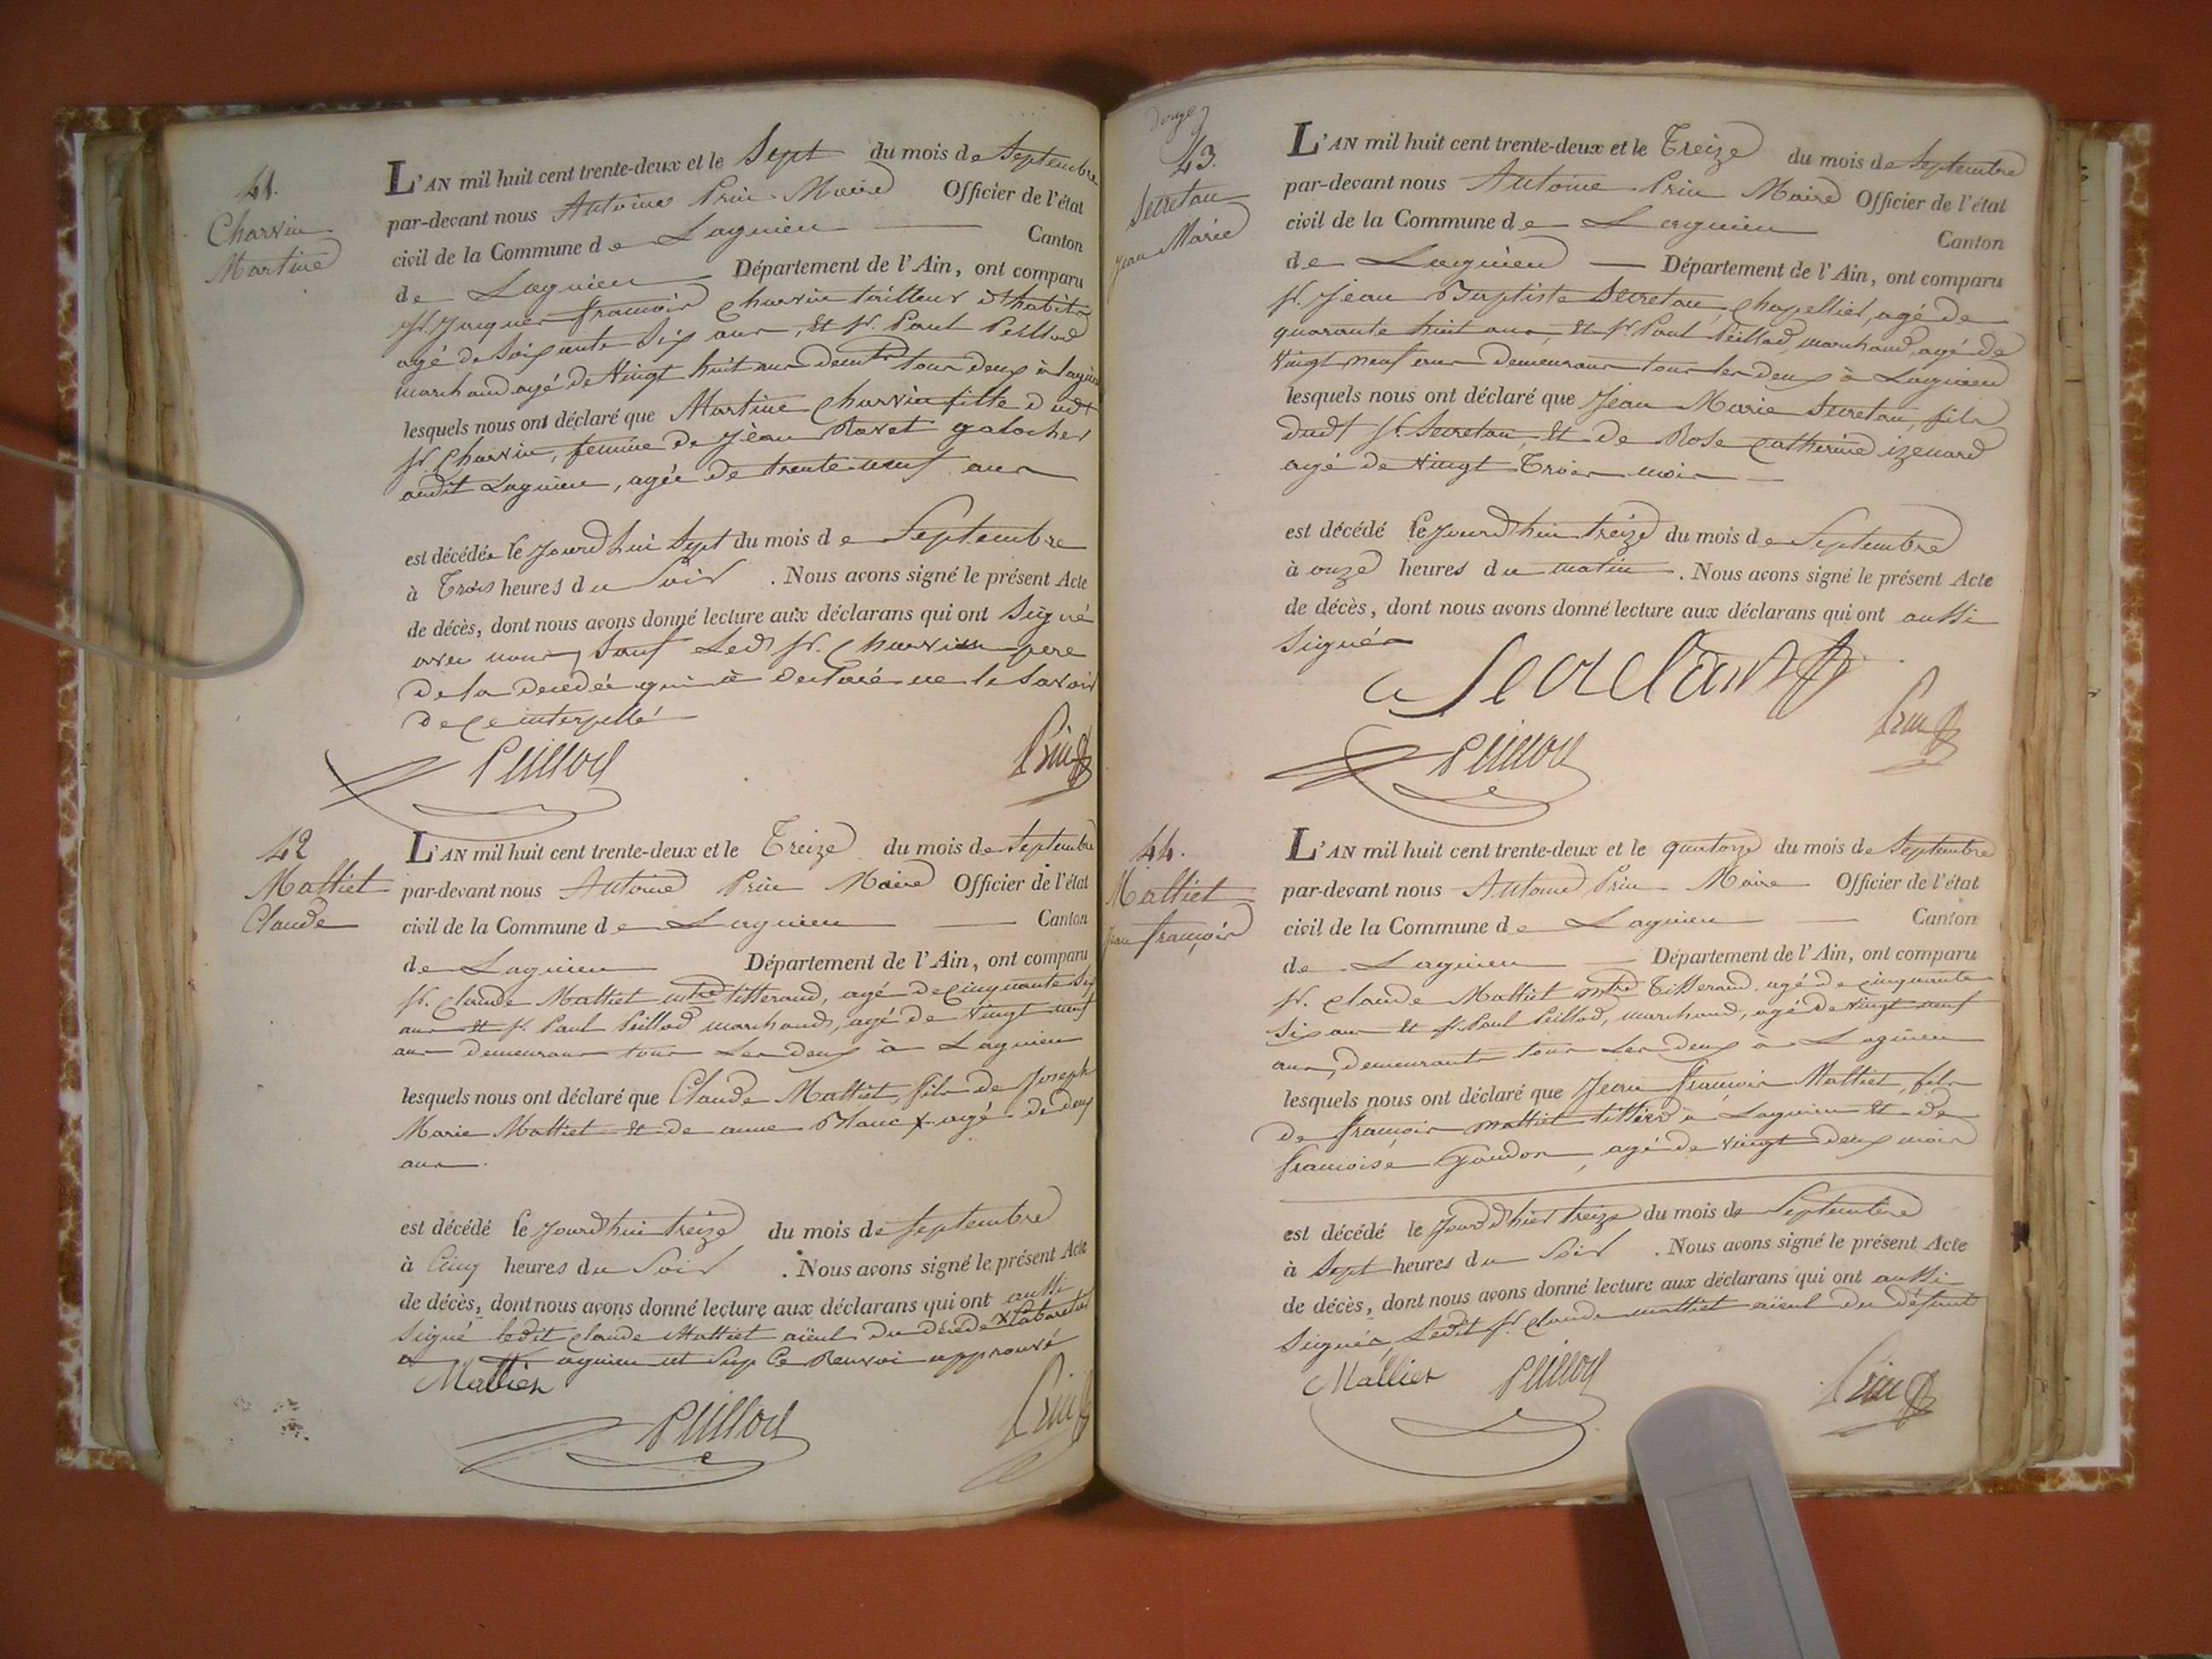 41.
Charvin
Martine
L'AN mil huit cent trente-deux et le Sept du mois de Septembre
par-devant nous Antoine Prin Maire Officier de l'état
civil de la Commune de Lagnieu Canton
de Lagnieu Département de l'Ain, ont comparu
Sr. Jacques François Charvin tailleur d'habits
agé de Soixante Six ans, et Sr. Paul Peillod
marchand agé de Vingt huit ans demts tous deux à Lagnieu
lesquels nous ont déclaré que Martine Charvin fille dudt
Sr. Charvin, femme de Jean Ravet galocher
audit Lagnieu, agée de trente neuf ans
est décédée le jourd'hui Sept du mois de Septembre
à Trois heures du Soir . Nous avons signé le présent Acte
de décès, dont nous avons donné lecture aux déclarans qui ont Signé
avec nous, Sauf Led. Sr. Charvin pere
de la décédée qui à déclaré ne le Savoir
de ce interpellé
Peillod Prin
42
Malliet
Claude
L'AN mil huit cent trente-deux et le Treize du mois de Septembre
par-devant nous Antoine Prin Maire Officier de l'état
civil de la Commune de Lagnieu Canton
de Lagnieu Département de l'Ain, ont comparu
Sr. Claude Malliet tisserand, agé de cinquante Six
ans et Sr. Paul Peillod marchand, agé de Vingt neuf
ans demeurans tous les deux à Lagnieu
lesquels nous ont déclaré que Claude Malliet, fils de Joseph
Marie Malliet et de anne Blanc x agé de deux
ans.
est décédé le jourd'hui treize du mois de Septembre
à Cinq heures du Soir . Nous avons signé le présent Acte
de décès, dont nous avons donné lecture aux déclarans qui ont aussi
Signé ledit Claude Malliet aïeul du décédé x Cabaretier
a Lagnieu Ce Renvoi approuvé
Mallier
Peillod Prin
43.
Secretan
Jean Marie
L'AN mil huit cent trente-deux et le Treize du mois de Septembre
par-devant nous Antoine Prin Maire Officier de l'état
civil de la Commune de Lagnieu Canton
de Lagnieu Département de l'Ain, ont comparu
Sr. Jean Baptiste Secretan, Chapellier, agé de
quarante huit ans, et Sr. Paul Peillod, marchand, agé de
Vingt neuf ans demeurans tous les deux à Lagnieu
lesquels nous ont déclaré que Jean Marie Secretan, fils
dudt Sr. Secretan, et de Rose Catherine izenard
agé de Vingt Trois mois
est décédé le jourd'hui treize du mois de Septembre
à onze heures du matin . Nous avons signé le présent Acte
de décès, dont nous avons donné lecture aux déclarans qui ont aussi
Signés
Secretant
Peillod Prin
44.
Malliet
Jean François
L'AN mil huit cent trente-deux et le quatorze du mois de Septembre
par-devant nous Antoine Prin Maire Officier de l'état
civil de la Commune de Lagnieu Canton
de Lagnieu Département de l'Ain, ont comparu
Sr. Claude Malliet Tisserand, agé de cinquante
Six ans et Sr. Paul Peillod, marchand, agé de Vingt neuf
ans, demeurants tous les deux à Lagnieu
lesquels nous ont déclaré que Jean François Malliet, fils
de François Malliet tissерd à Lagnieu et de
Françoise Gaudon, agé de Vingt deux mois
est décédé le jourd'hier treize du mois de Septembre
à Sept heures du Soir . Nous avons signé le présent Acte
de décès, dont nous avons donné lecture aux déclarans qui ont aussi
Signés, Ledit Sr. Claude Malliet aïeul du défunt
Mallier Peillod Prin